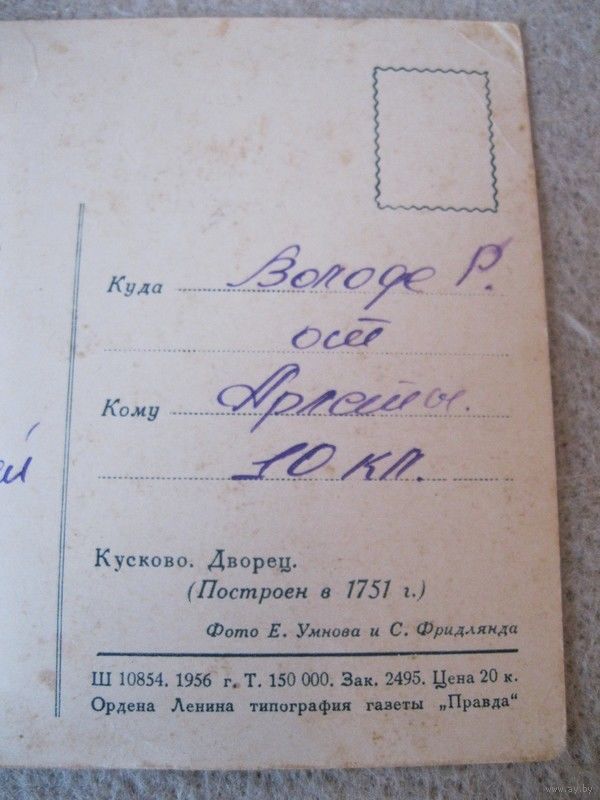 Куда Володе Р.
от
Кому Арлеты.
10 кл.
ей
Кусково. Дворец.
(Построен в 1751 г.)
Фото Е. Умнова и С. Фридлянда
Ш 10854. 1956 г. Т. 150 000. Зак. 2495. Цена 20 к.
Ордена Ленина типография газеты „Правда“
www.ay.by